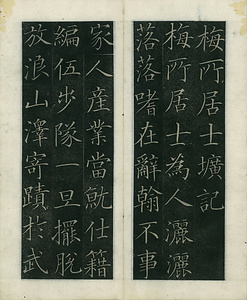 梅所居士壙記
梅所居士為人灑灑
落落嗜在辭翰不事
家人產業當就仕籍
編伍步隊一旦擺脫
放浪山澤寄蹟於武